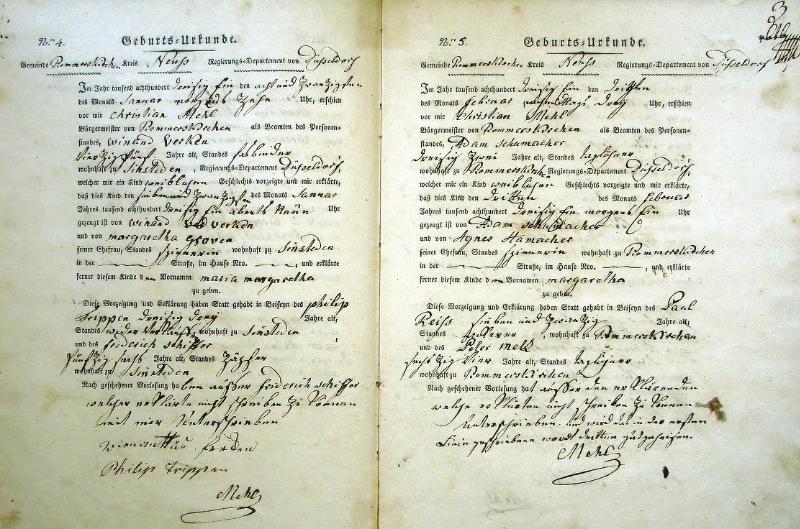 Nro. 4. Geburts-Urkunde.
Gemeinde Rommerskirchen Kreis Neuss Regierungs-Departement von Düsseldorf
Im Jahr tausend achthundert dreisig Ein den acht und zwanzigsten
des Monats Januar morgens Zehn Uhr, erschien
vor mir Christian Mehl
Bürgermeister von Rommerskirchen als Beamten des Personen-
standes, Winand Verken
vierzig fünf Jahre alt, Standes
wohnhaft zu Sinsteden, Regierungs-Departement Düsseldorf,
welcher mir ein Kind weiblichen Geschlechts vorzeigte und mir erklärte,
daß dies Kind den sieben und zwanzigsten des Monats Januar
Jahres tausend achthundert dreisig Ein abends Neun Uhr
gezeugt ist von Winand Verken
und von Margaretha Groven
seiner Ehefrau, Standes Spinnerin wohnhaft zu Sinsteden
in der Straße, im Hause Nro. , und erklärte
ferner diesem Kinde den Vornamen maria margaretha
zu geben.
Diese Vorzeigung und Erklärung haben Statt gehabt in Beiseyn des Philip
Trippen dreisig drey Jahre alt,
Standes wohnhaft zu Sinsteden
und des Friderich Schiffer
fünfzig sechs Jahre alt, Standes
wohnhaft zu Sinsteden
Nach geschehener Vorlesung haben ausser Friderich Schiffer
welcher erklärte nicht schreiben zu können
mit mir Unterschrieben
Philip Trippen
Mehl
3
Nro. 5. Geburts-Urkunde.
Gemeinde Rommerskirchen Kreis Neuss Regierungs-Departement von Düsseldorf
Im Jahr tausend achthundert dreisig Ein den dritten
des Monats Februar nachmittags drey Uhr, erschien
vor mir Christian Mehl
Bürgermeister von Rommerskirchen als Beamten des Personen-
standes, Adam Schumacher
dreisig zwei Jahre alt, Standes taglöhner
wohnhaft zu Rommerskirchen Regierungs-Departement Düsseldorf,
welcher mir ein Kind weiblichen Geschlechts vorzeigte und mir erklärte,
daß dies Kind den dritten des Monats Februar
Jahres tausend achthundert dreisig Ein morgens Ein Uhr
gezeugt ist von Adam Schumacher
und von Agnes Hamacher
seiner Ehefrau, Standes Spinnerin wohnhaft zu Rommerskirchen
in der Straße, im Hause Nro. , und erklärte
ferner diesem Kinde den Vornamen margaretha
zu geben.
Diese Vorzeigung und Erklärung haben Statt gehabt in Beiseyn des Paul
Reiss sieben und zwanzig Jahre alt,
Standes , wohnhaft zu Rommerskirchen
und des Peter Mells
sechzig vier Jahre alt, Standes taglöhner
wohnhaft zu Rommerskirchen
Nach geschehener Vorlesung hat ausser den erklärenden
welche erklärten nicht schreiben zu können
Unterschrieben. und wird in der ersten
Mehl